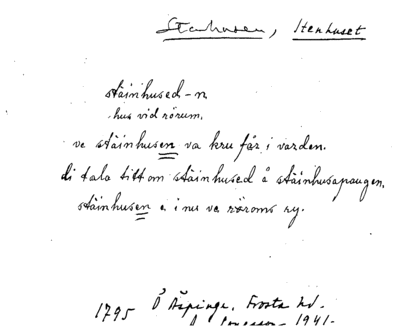 Stenhusen, Stenhuset
stäinhused-n
hus vid rörum.
ve stäinhusen va kru får i varden.
di tala titt om stäinhused å stäinhusapaugen.
stäinhusen ä i nu ve röroms ry.
1795 Ö Äspinge, Frosta hd.
1941.